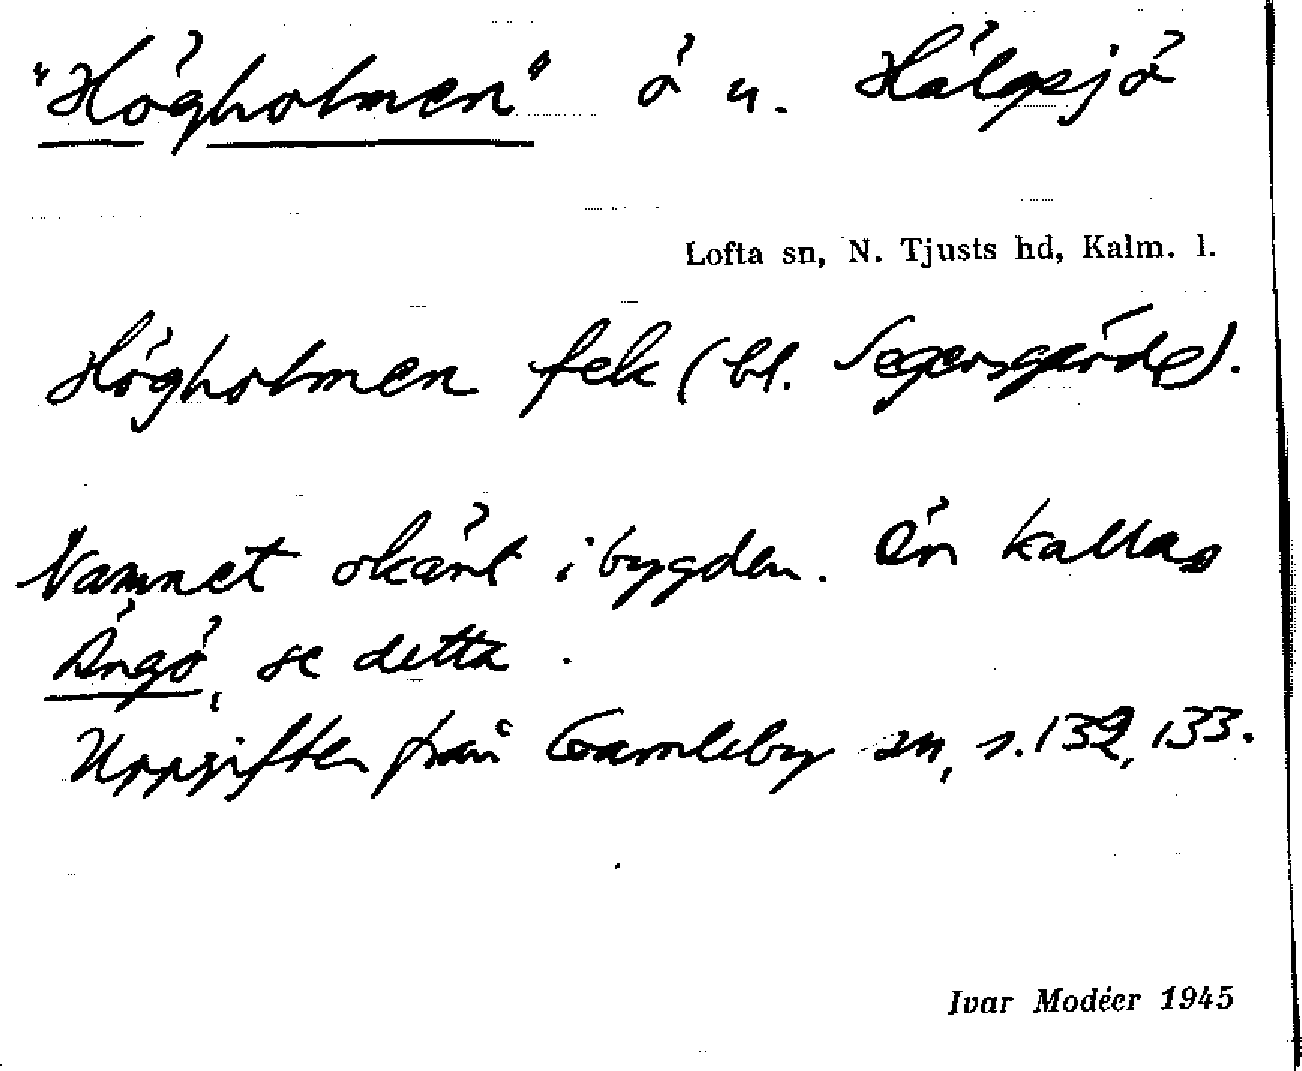 "Högholmen" ö u. Hälgsjö
Lofta sn, N. Tjusts hd, Kalm. l.
Högholmen fek (bl. Segersgärde).
Namnet okänt i bygden. Ön kallas
Ängö, se detta.
Uppgifter från Gamleby sn, s. 132, 133.
Ivar Modéer 1945